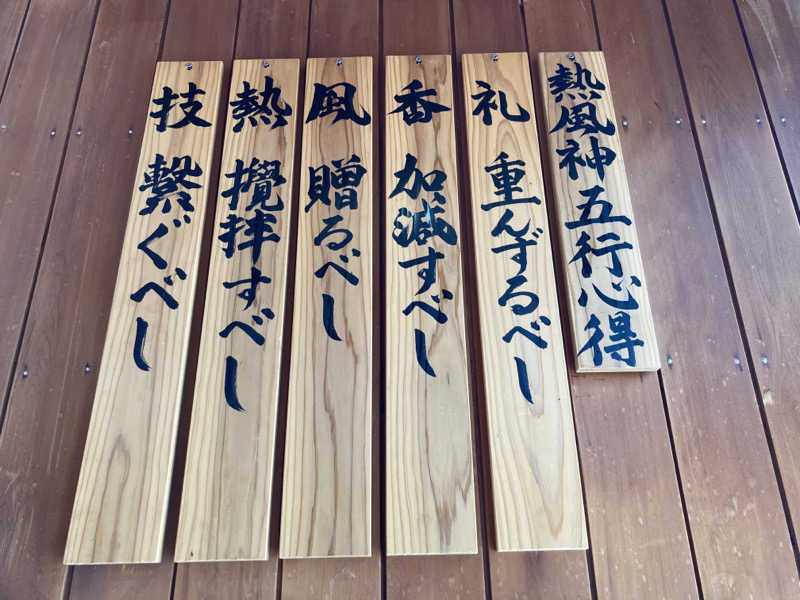 熱風神五行心得
礼 重んずるべし
香 加減すべし
風 贈るべし
熱 攪拌すべし
技 繋ぐべし